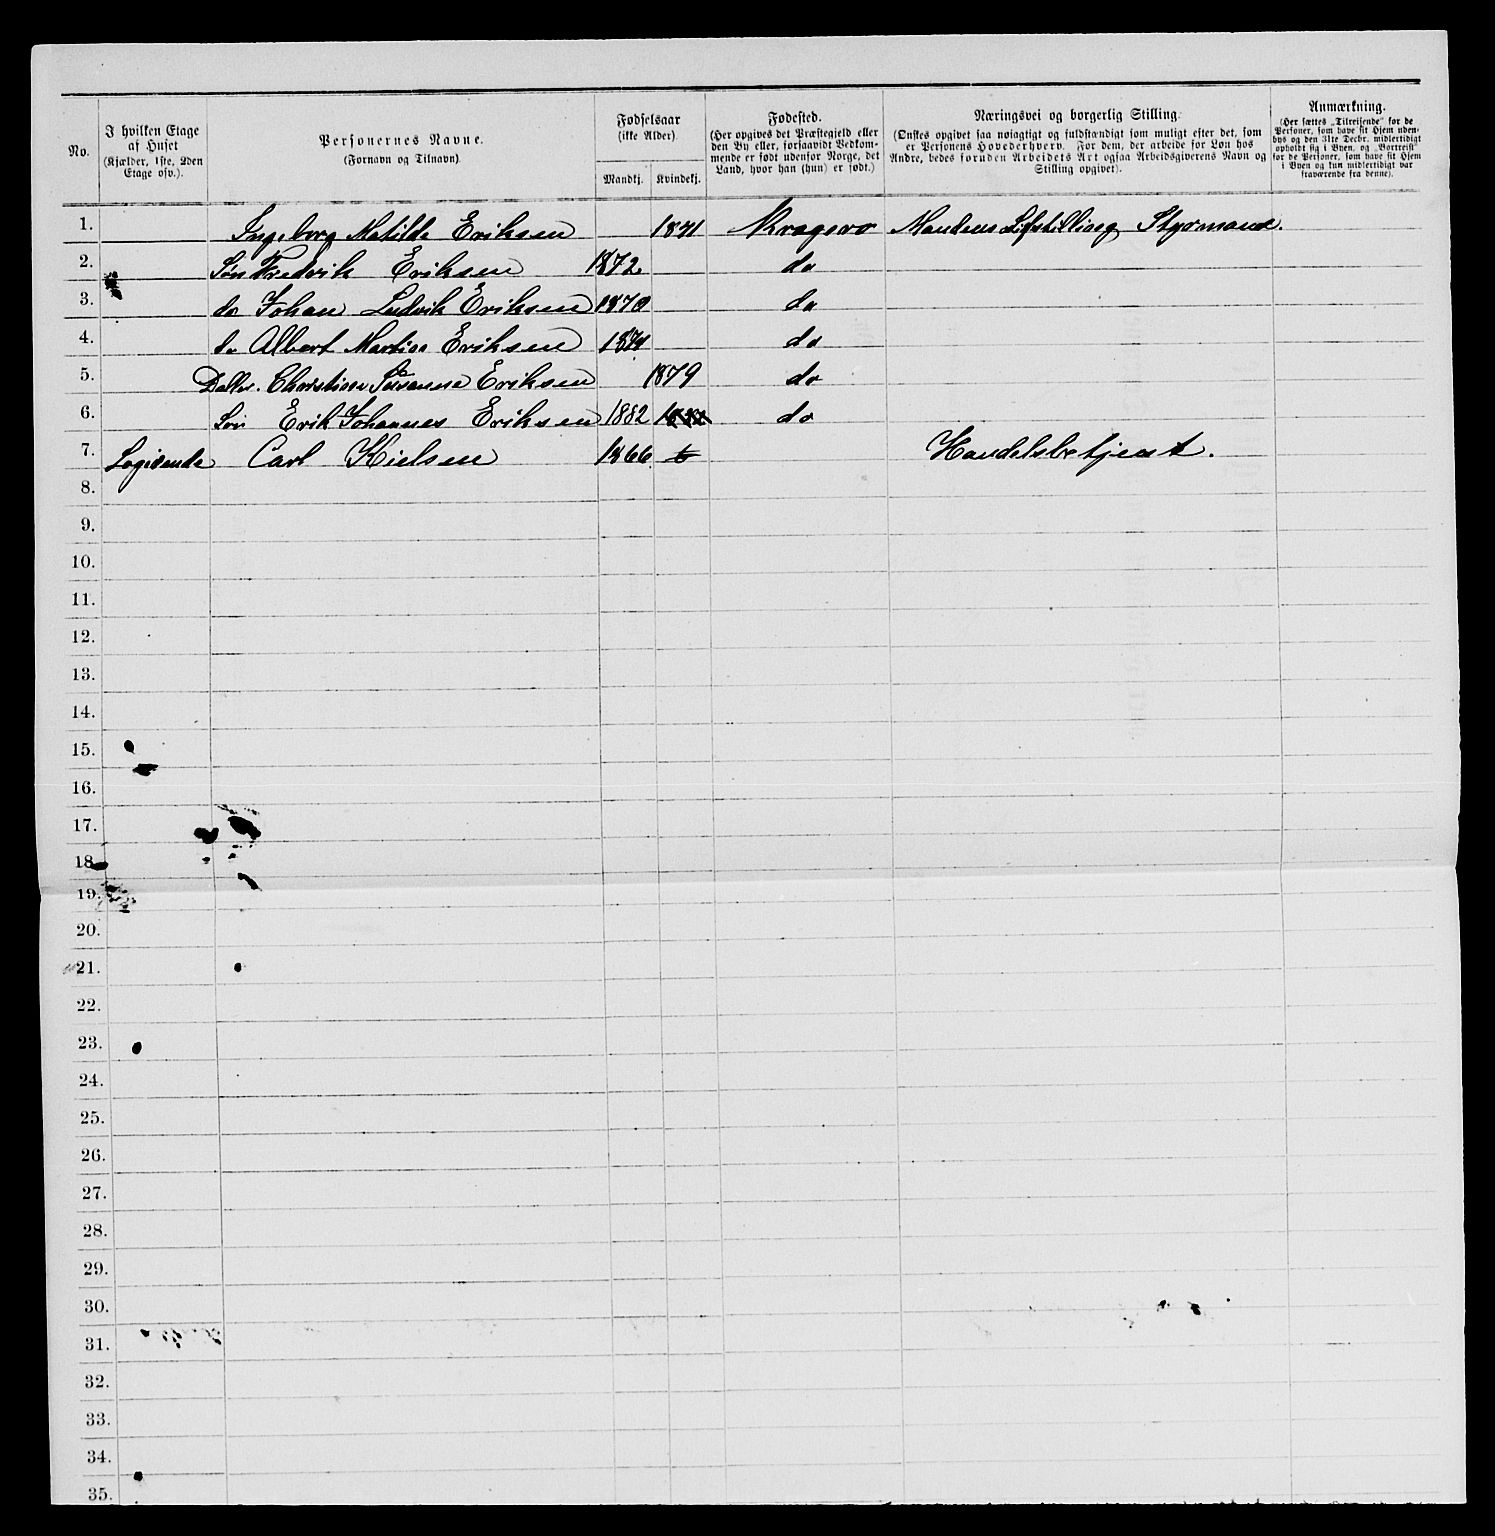 No.
I hvilken Etage af Huset (Kjælder, 1ste, 2den Etage osv.).
Personernes Navne. (Fornavn og Tilnavn).
Fødselsaar (ikke Alder).
Mandkj. Kvindekj.
Fødested. (Her opgives det Præstegjeld eller den By eller, forsaavidt Vedkommende er født udenfor Norge, det Land, hvor han (hun) er født.)
Næringsvei og borgerlig Stilling. (Ønskes opgivet saa nøiagtigt og fuldstændigt som muligt efter det, som er Personens Hovederhverv. For dem, der arbeide for Løn hos Andre, bedes foruden Arbeidets Art ogsaa Arbeidsgiverens Navn og Stilling opgivet).
Anmærkning. (Her sættes „Tilreisende" for de Personer, som have sit Hjem udenbys og den 31te Decbr. midlertidigt opholdt sig i Byen, og „Bortreist" for de Personer, som have sit Hjem i Byen og kun midlertidigt var fraværende fra denne).
1. Ingeborg Matilde Eriksen 1871 Kragerø Mandens Lifsstilling Styrmand.
2. Søn Fredrik Eriksen 1872 do
3. do Johan Ludvik Eriksen 1870 do
4. do Albert Martin Eriksen do
5. Datter. Christine Susanne Eriksen 1879 do
6. Søn Erik Johannes Eriksen 1882 do
7. Logirende Carl Kielsen 1866 Handelsbetjent.
8.
9.
10.
11.
12.
13.
14.
15.
16.
17.
18.
19.
20.
21.
22.
23.
24.
25.
26.
27.
28.
29.
30.
31.
32.
33.
34.
35.